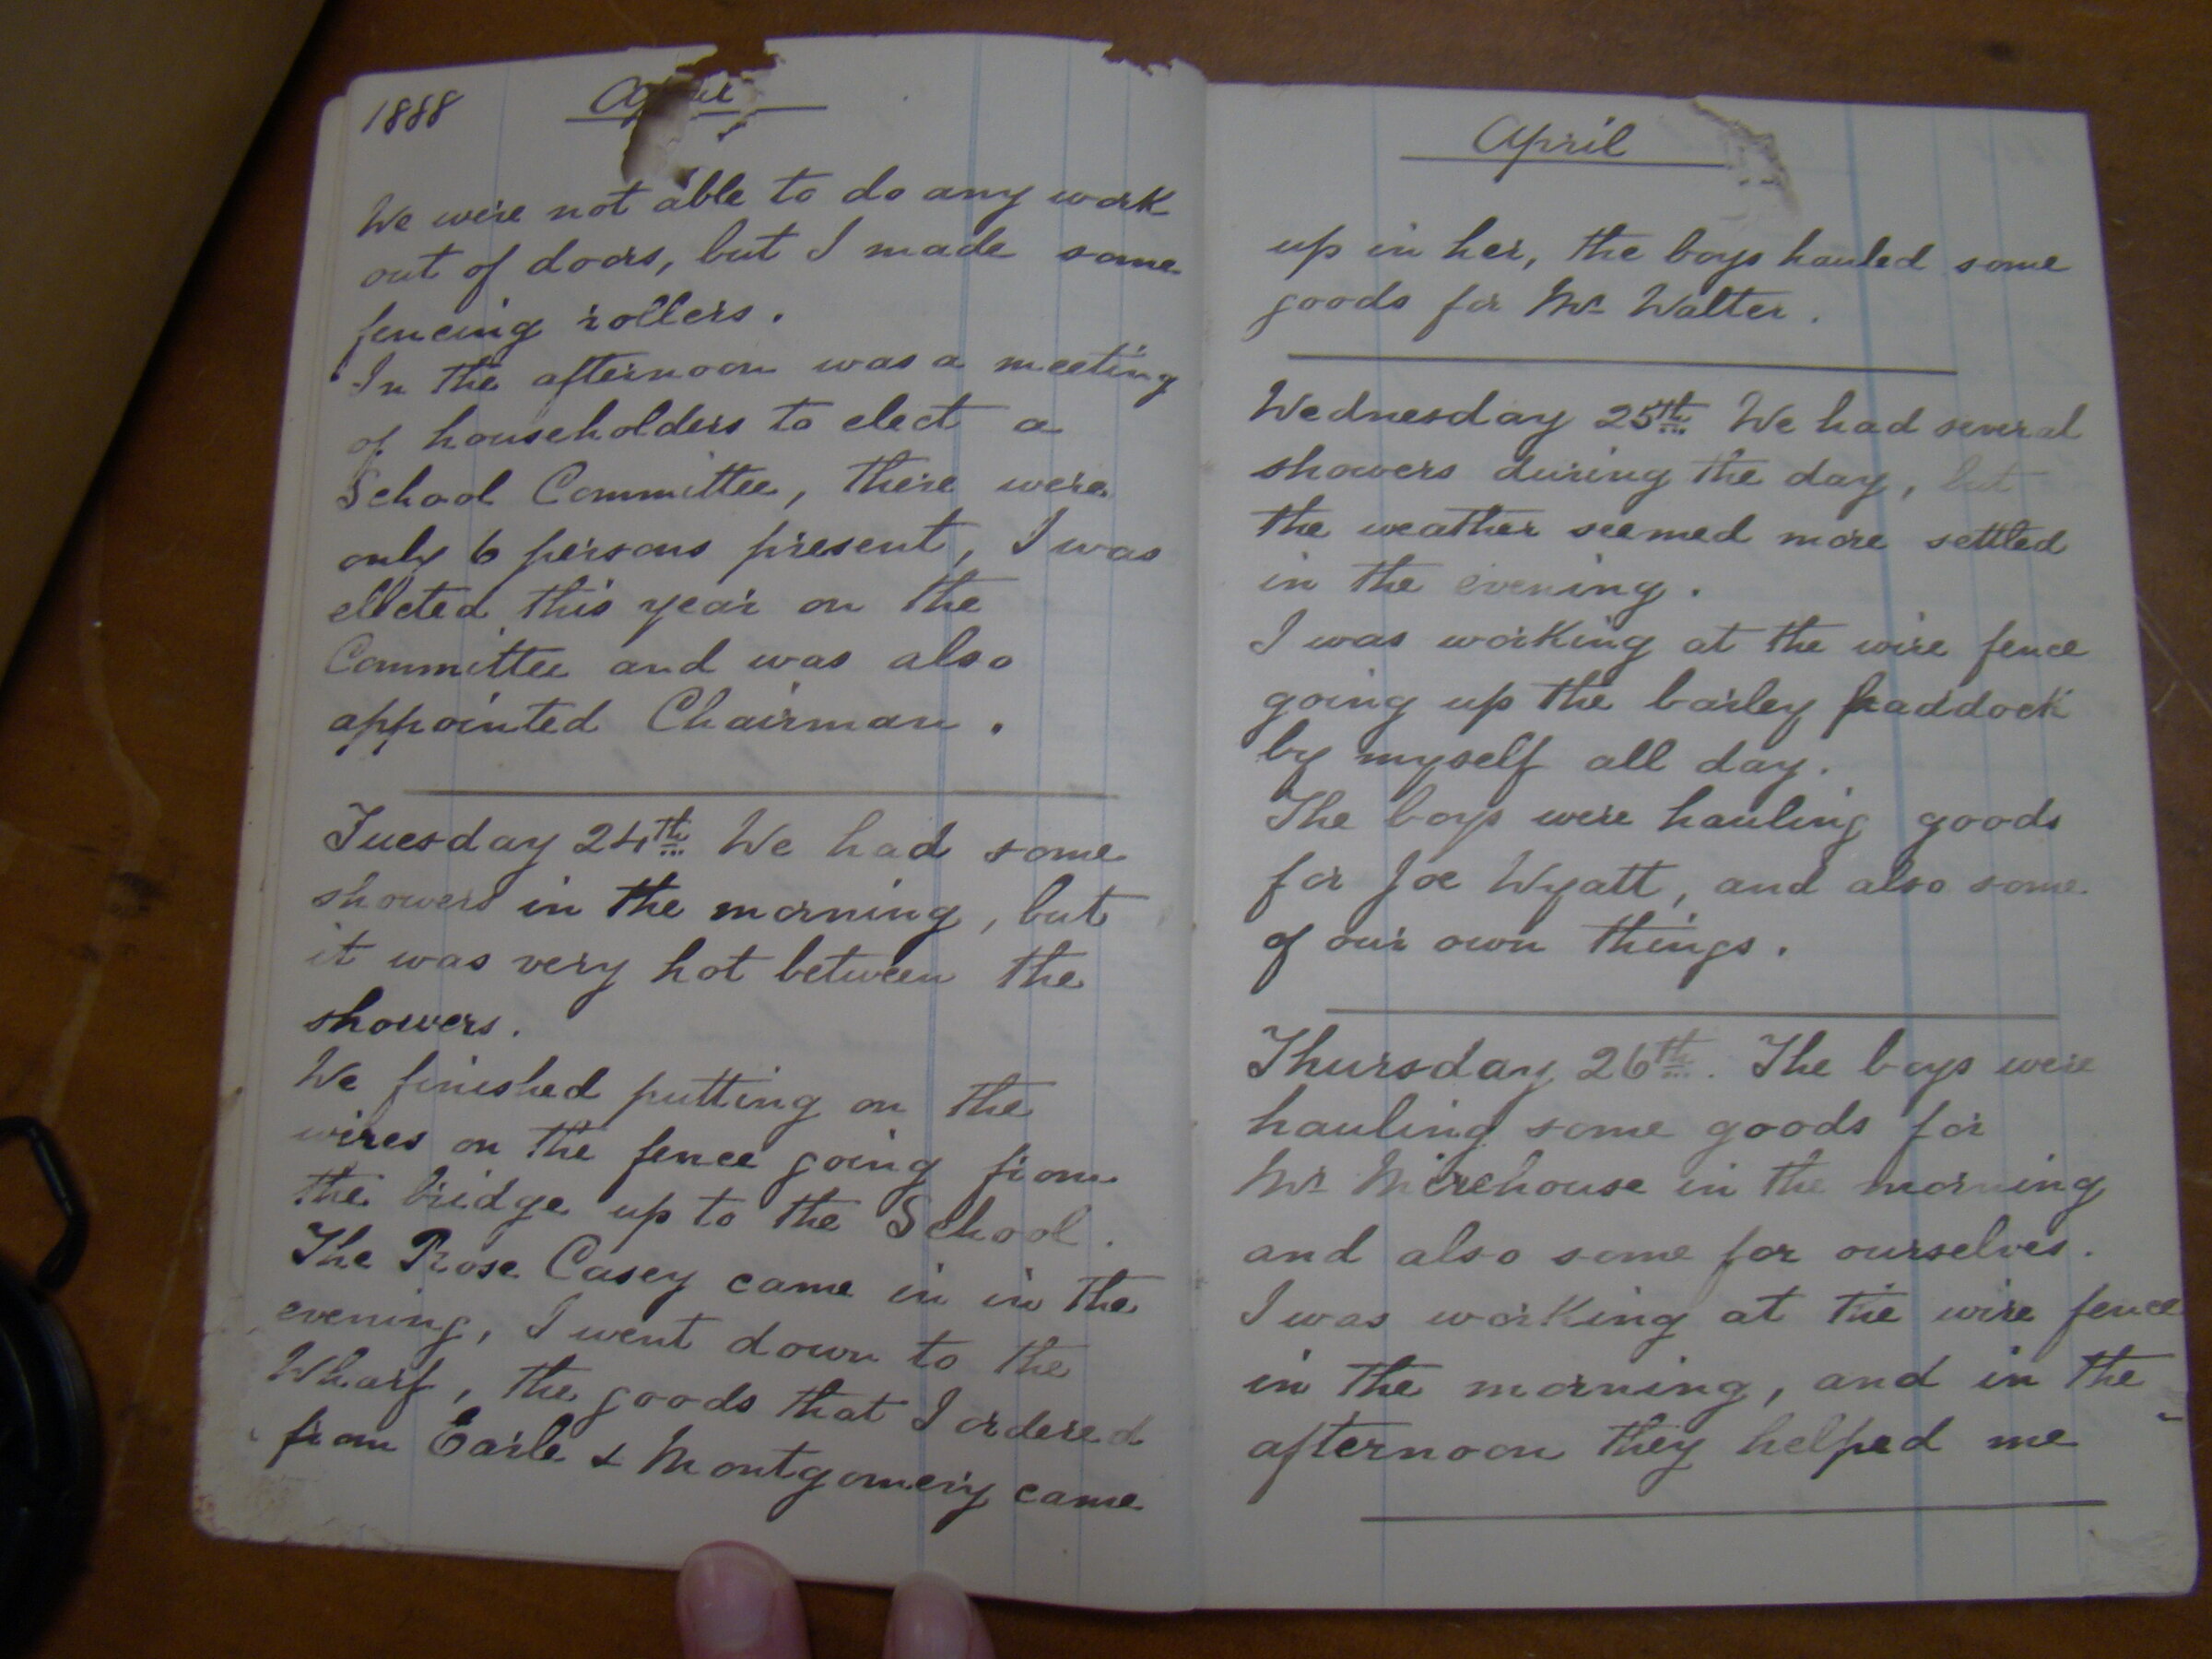 1888 April
We were not able to do any work
out of doors, but I made some
fencing rollers.
In the afternoon was a meeting
of householders to elect a
School Committee, there were
only 6 persons present, I was
ellcted this year on the
Committee and was also
appointed Chairman.
Tuesday 24th We had some
showers in the morning, but
it was very hot between the
showers.
We finished putting on the
wires on the fence going from
the bridge up to the School.
The Rose Casey came in in the
evening, I went down to the
Wharf, the goods that I ordered
from Earle & Montgomery came
April
up in her, the boys hauled some
goods for Mr Walter.
Wednesday 25th We had several
showers during the day, but
the weather seemed more settled
in the evening.
I was working at the wire fence
going up the barley paddock
by myself all day.
The boys were hauling goods
for Joe Wyatt, and also some
of our own things.
Thursday 26th. The boys were
hauling some goods for
Mr Mirehouse in the morning
and also some for ourselves.
I was working at the wire fence
in the morning, and in the
afternoon they helped me